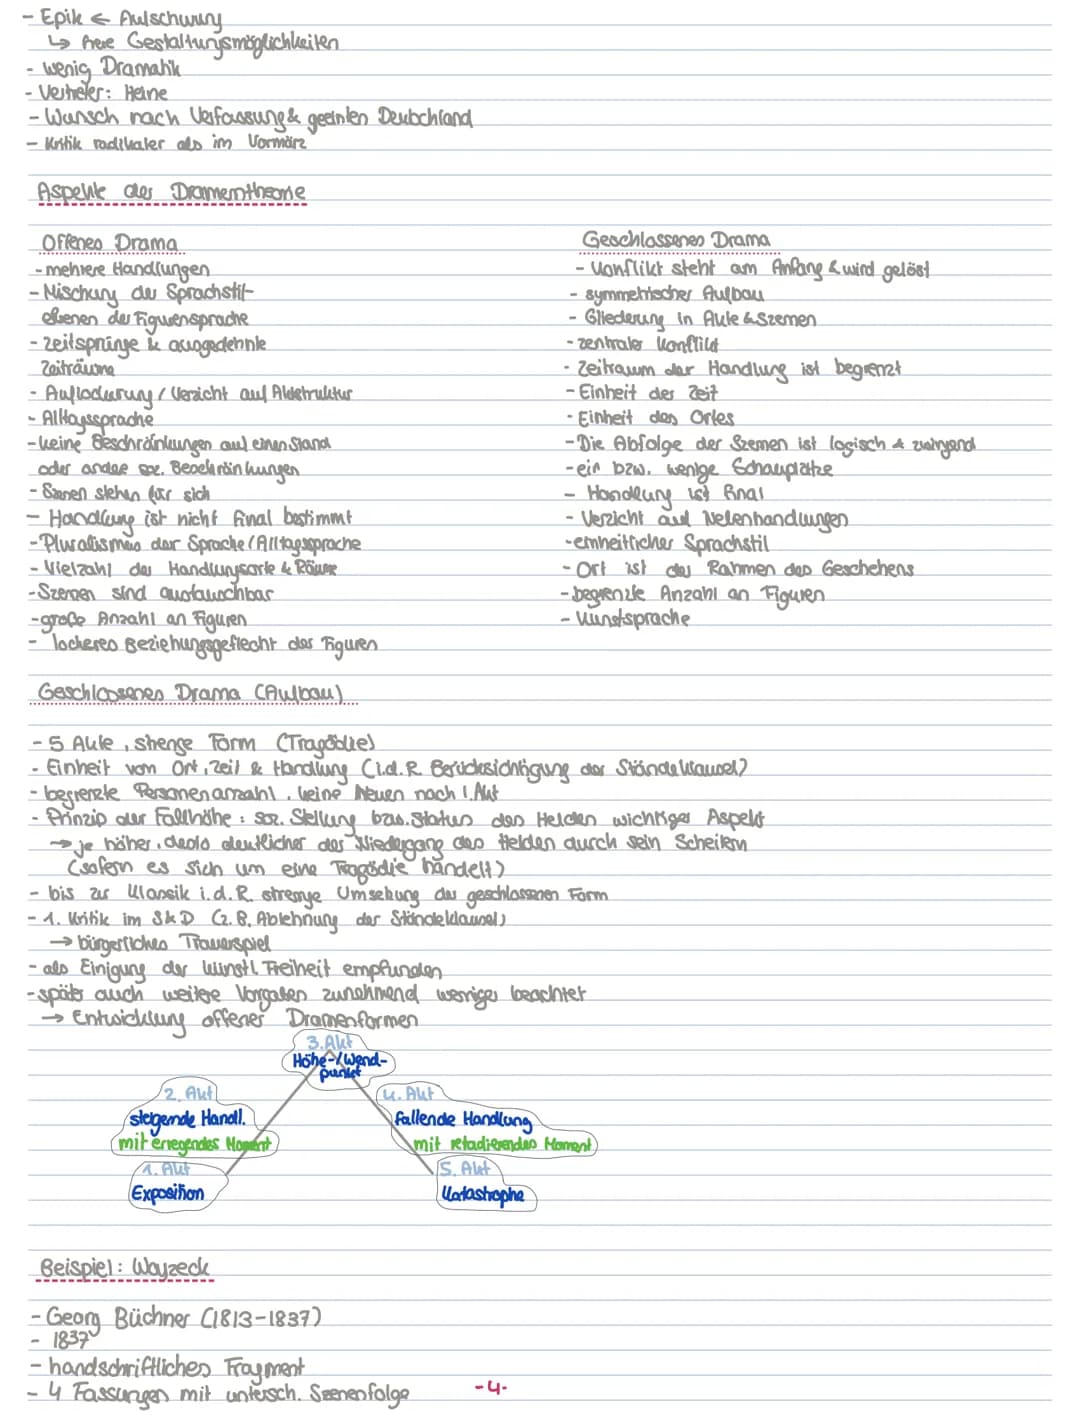 - Epik ← Aufschwung
↳ freie Gestaltungsmöglichkeiten
- wenig Dramatik
- Vertreter: Heine
- Wunsch nach Verfassung & geeinten Deutschland
- Kritik radikaler als im Vormärz
Aspekte der Dramentheorie
Offenes Drama
- mehrere Handlungen
- Mischung der Sprachstil-
ebenen der Figurensprache
- Zeitsprünge & ausgedehnte
Zeiträume
- Auflockerung / Verzicht auf Aktstruktur
- Alltagssprache
- keine Beschränkungen auf einen Stand
oder andere soz. Beschränkungen
- Szenen stehen für sich
- Handlung ist nicht final bestimmt
- Pluralismus der Sprache / Alltagssprache
- Vielzahl der Handlungsorte & Räume
- Szenen sind austauschbar
- große Anzahl an Figuren
- lockeres Beziehungsgeflecht der Figuren
Geschlossenes Drama
- Konflikt steht am Anfang & wird gelöst
- symmetrischer Aufbau
- Gliederung in Akte & Szenen
- zentraler Konflikt
- Zeitraum der Handlung ist begrenzt
- Einheit der Zeit
- Einheit des Ortes
- Die Abfolge der Szenen ist logisch & zwingend
- ein bzw. wenige Schauplätze
- Handlung ist final
- Verzicht auf Nebenhandlungen
- einheitlicher Sprachstil
- Ort ist der Rahmen des Geschehens
- begrenzte Anzahl an Figuren
- Kunstsprache
Geschlossenes Drama (Aufbau)
- 5 Akte, strenge Form (Tragödie)
- Einheit von Ort, Zeit & Handlung (i.d.R. Berücksichtigung der Ständeklausel)
- begrenzte Personenanzahl, keine Neuen nach 1. Akt
- Prinzip der Fallhöhe: soz. Stellung bzw. Status des Helden wichtiger Aspekt
→ je höher, desto deutlicher der Niedergang des Helden durch sein Scheitern
(sofern es sich um eine Tragödie handelt)
- bis zur Klassik i.d.R. strenge Umsetzung der geschlossenen Form
- 1. Kritik im S&D (z.B. Ablehnung der Ständeklausel)
→ bürgerliches Trauerspiel
- als Einigung der künstl. Freiheit empfunden
- später auch weitere Vorgaben zunehmend weniger beachtet
→ Entwicklung offener Dramenformen
3. Akt
Höhe-/Wend-
punkt
2. Akt
steigende Handl.
mit erregendes Moment
4. Akt
fallende Handlung
mit retadierendes Moment
1. Akt
Exposition
5. Akt
Katastrophe
Beispiel: Woyzeck
- Georg Büchner (1813-1837)
- 1837
- handschriftliches Fragment
- 4 Fassungen mit untersch. Szenenfolge
-4-